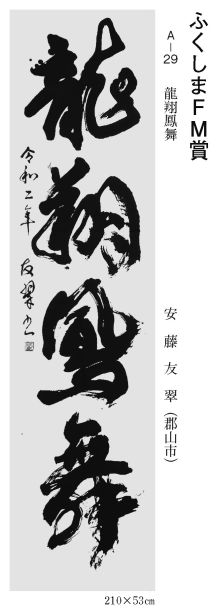 ふくしまFM賞
A－29 龍翔鳳舞
安藤友翠（郡山市）
龍翔鳳舞
令和二年 友翠书
210×53㎝